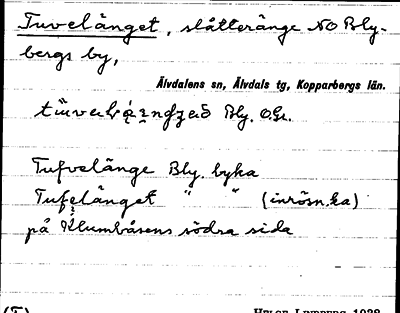 Tuvelänget, slåtteränge NO Bly-
bergs by,
Älvdalens sn, Älvdals tg, Kopparbergs län.
Bly. O.Gr.
Tufvelänge Bly. byka
Tufelänget " " (inrösn.ka)
på Klumbåsens södra sida
(T)
1938